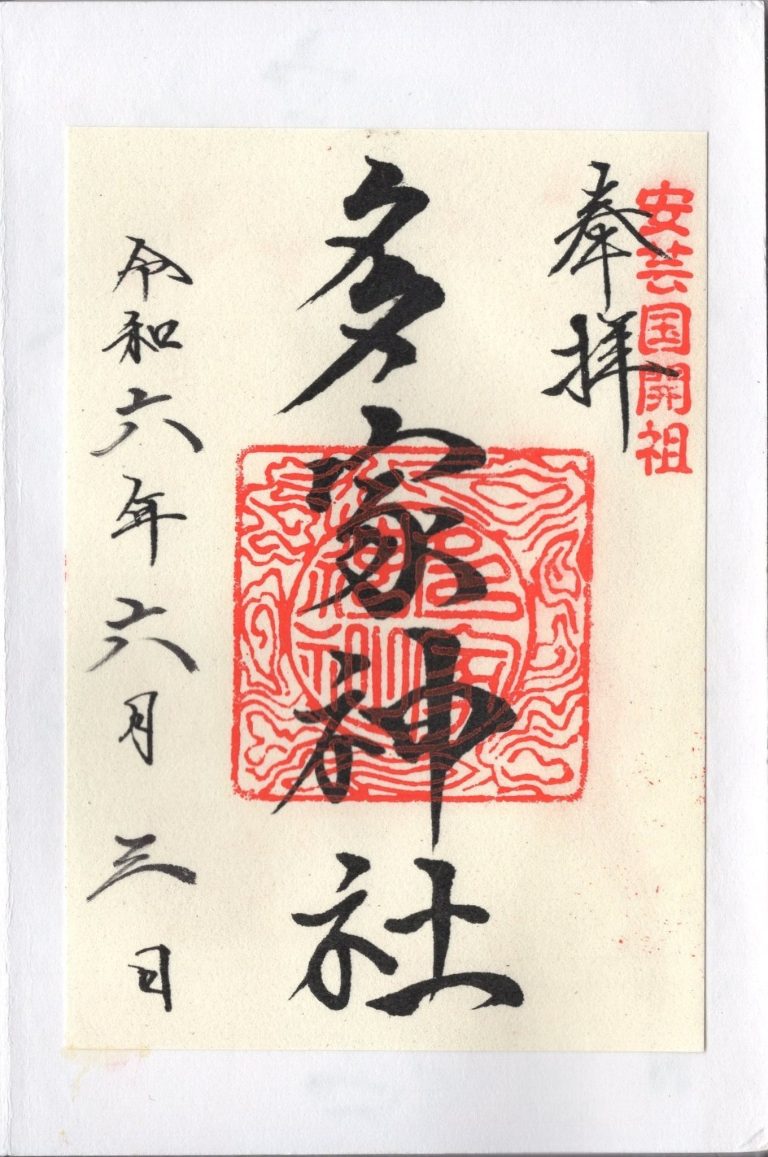 安芸国開祖
奉拝
多家神社
令和六年六月三日